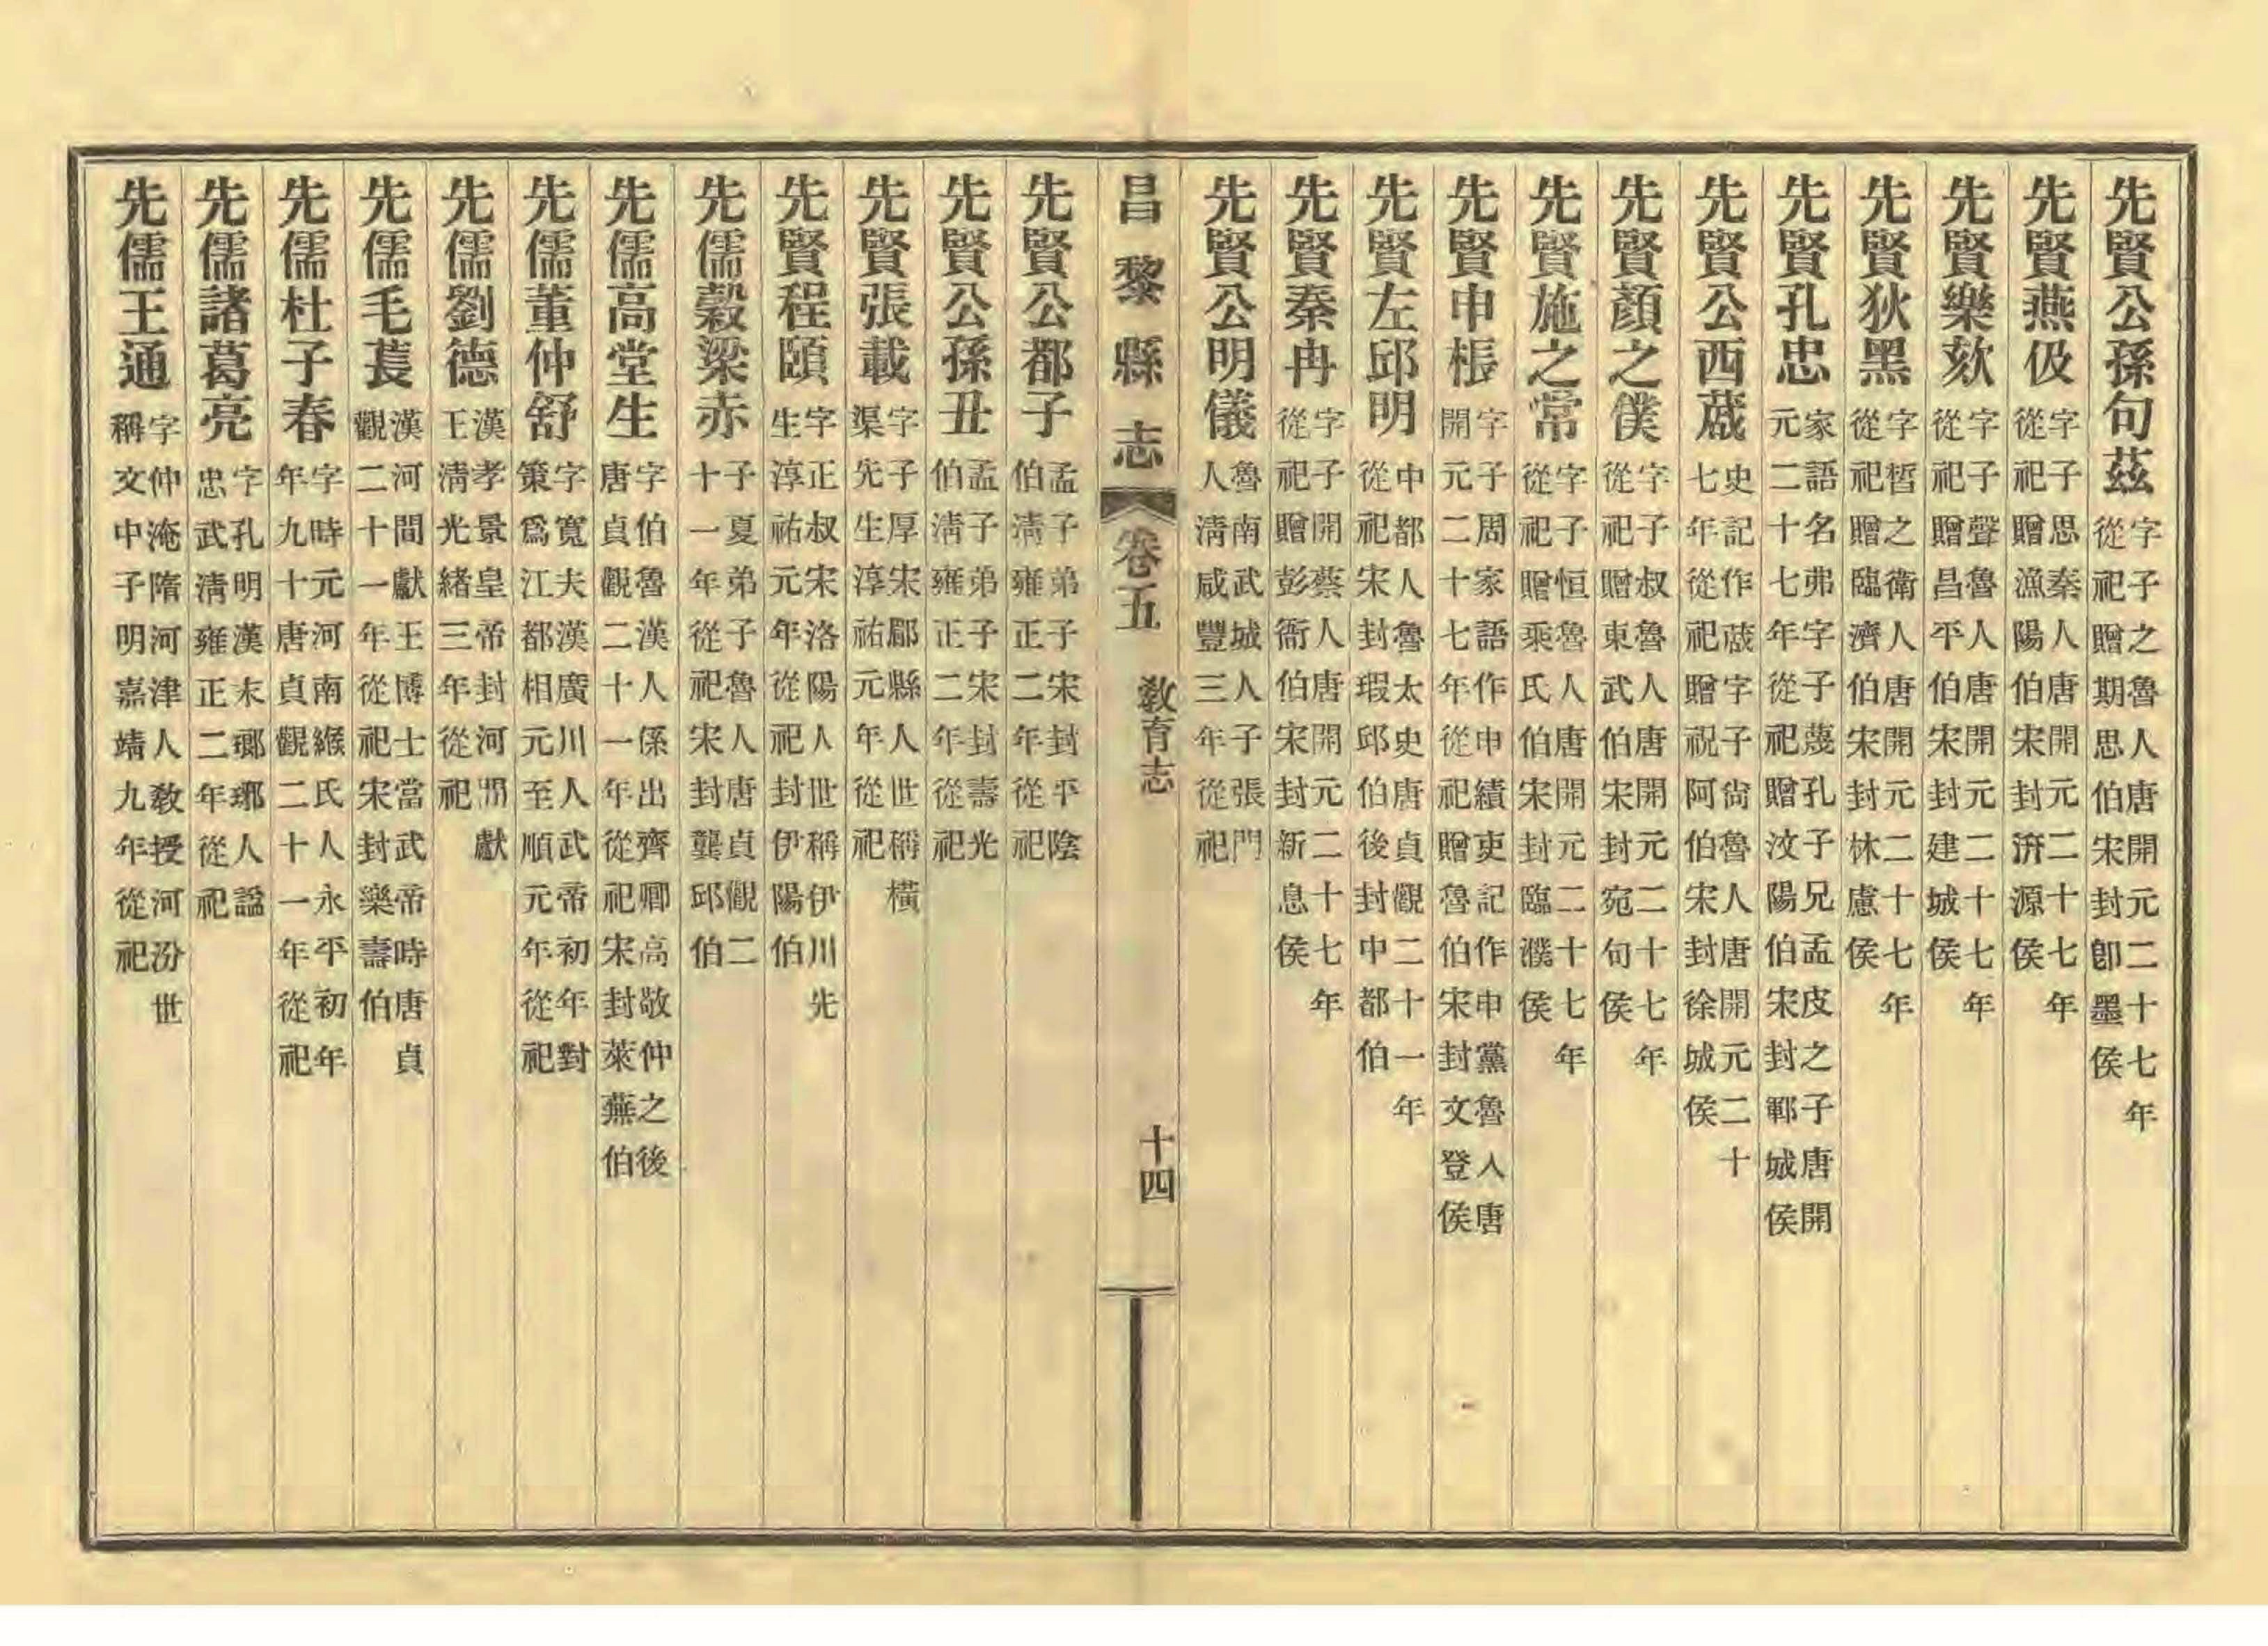 先賢公孫句茲字子之魯人唐開元二十七年從祀贈期思伯宋封卽墨侯
先賢燕伋字子思秦人唐開元二十七年從祀贈漁陽伯宋封汧源侯
先賢樂欬字子聲魯人唐開元二十七年從祀贈昌平伯宋封建城侯
先賢狄黑字皙之衛人唐開元二十七年從祀贈臨濟伯宋封林慮侯
先賢孔忠家語名弗字子蔑孔子兄孟皮之子唐開元二十七年從祀贈汶陽伯宋封鄆城侯
先賢公西蒧史記作蒧字子尙魯人唐開元二十七年從祀贈祝阿伯宋封徐城侯
先賢顏之僕字子叔魯人唐開元二十七年從祀贈東武伯宋封宛句侯
先賢施之常字子恒魯人唐開元二十七年從祀贈乘氏伯宋封臨濮侯
先賢申棖字子周家語作申績吏記作申黨魯人唐開元二十七年從祀贈魯伯宋封文登侯
先賢左邱明中都人魯太史唐貞觀二十一年從祀宋封瑕邱伯後封中都伯
先賢秦冉字子開蔡人唐開元二十七年從祀贈彭衙伯宋封新息侯
先賢公明儀魯南武城人子張門人淸咸豐三年從祀
昌黎縣志 卷五 敎育志 十四
先賢公都子孟子弟子宋封平陰伯淸雍正二年從祀
先賢公孫丑孟子弟子宋封壽光伯淸雍正二年從祀
先賢張載字子厚宋郿縣人世稱橫渠先生淳祐元年從祀
先賢程頤字正叔宋洛陽人世稱伊川先生淳祐元年從祀封伊陽伯
先儒穀梁赤子夏弟子魯人唐貞觀二十一年從祀宋封龔邱伯
先儒高堂生字伯魯漢人係出齊卿高敬仲之後唐貞觀二十一年從祀宋封萊蕪伯
先儒董仲舒字寬夫漢廣川人武帝初年對策爲江都相元至順元年從祀
先儒劉德漢孝景皇帝封河間獻王淸光緖三年從祀
先儒毛萇漢河間獻王博士當武帝時唐貞觀二十一年從祀宋封樂壽伯
先儒杜子春字時元河南緱氏人永平初年年九十唐貞觀二十一年從祀
先儒諸葛亮字孔明漢末瑯琊人諡忠武淸雍正二年從祀
先儒王通字仲淹隋河津人敎授河汾世稱文中子明嘉靖九年從祀